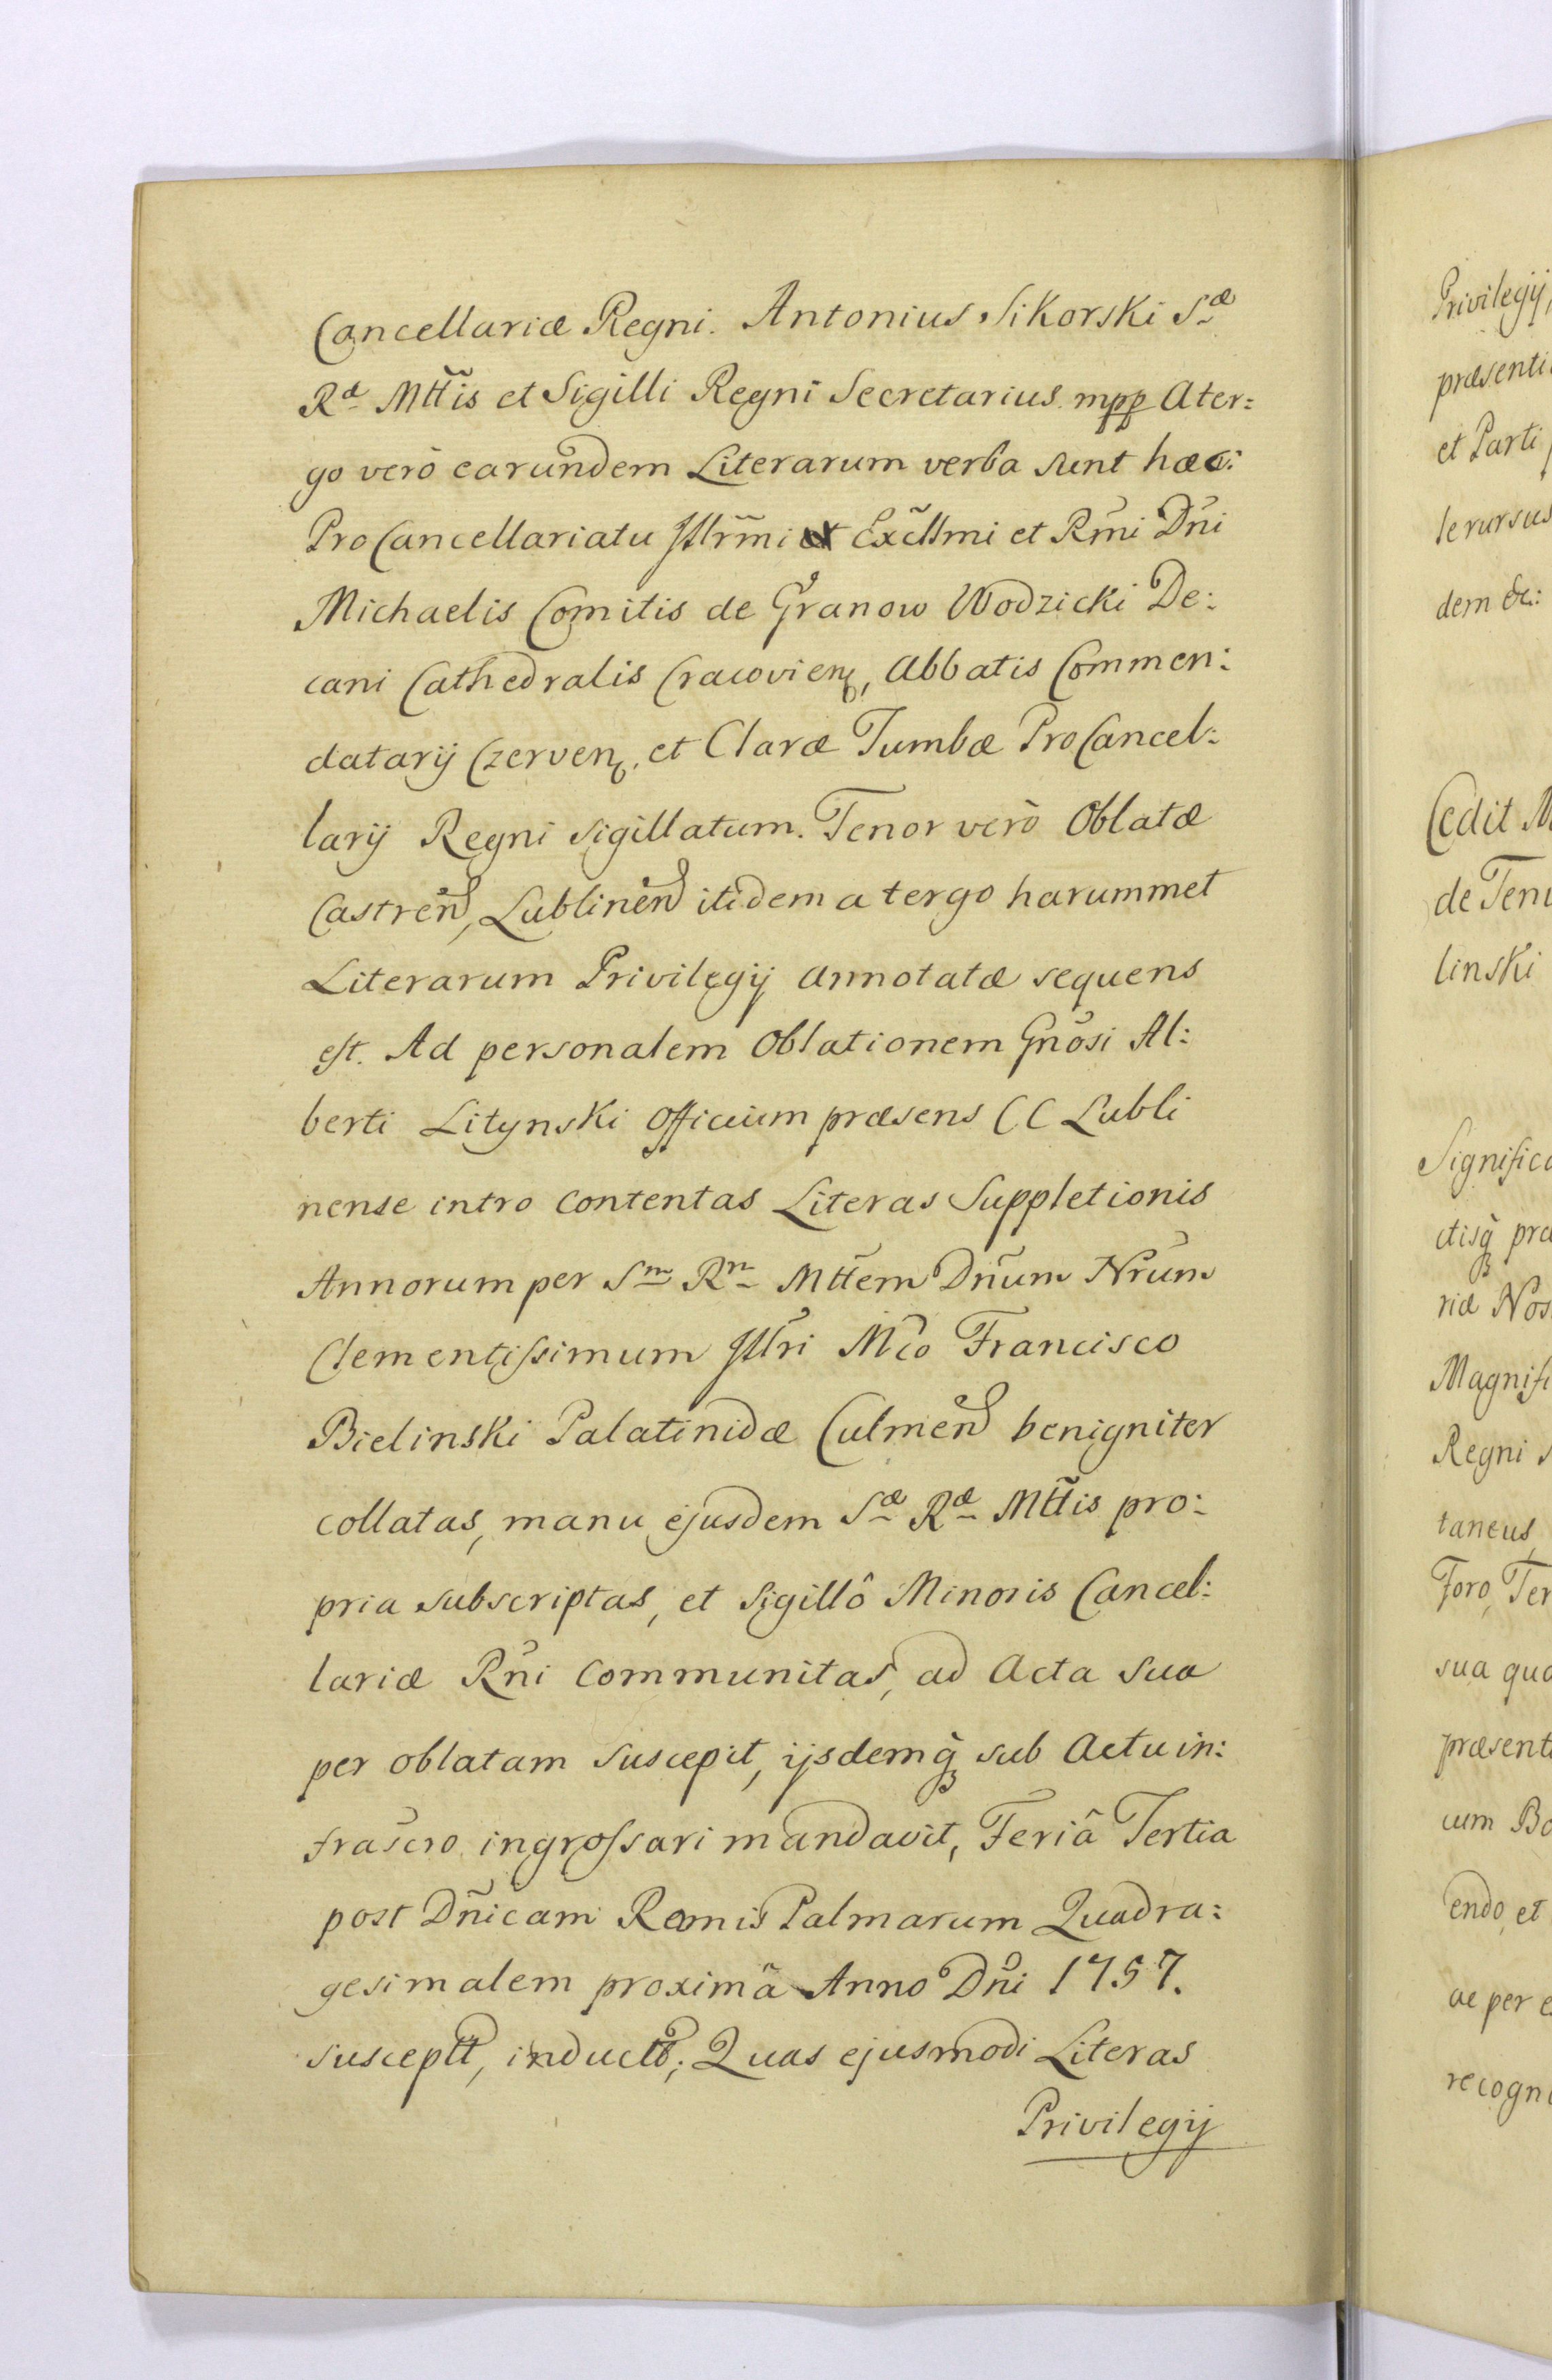 Cancellariæ Regni. Antonius Sikorski Sæ
Ræ Mttis et Sigilli Regni Secretarius mpp Ater:
go verò earundem Literarum verba sunt hæc:
ProCancellariatu Jllr̃mi et Excllmi et Rm̃i Dñi
Michaelis Comitis de Granow Wodzicki De:
cani Cathedralis Cracovien, Abbatis Commen:
datarij Czerven, et Claræ Tumbæ ProCancel:
larij Regni sigillatum. Tenor verò Oblatæ
Castren, Lublinen itidem a tergo harummet
Literarum Privilegij annotatæ sequens
est. Ad personalem Oblationem Gnõsi Al:
berti Litynski Officium præsens CC Lubli
nense intro contentas Literas Suppletionis
Annorum per Sm Rn Mttem Dñum Nr̃um
Clementissimum Jllri Mco Francisco
Bielinski Palatinidæ Culmen benigniter
collatas, manu ejusdem Sæ Ræ Mttis pro:
pria subscriptas, et Sigillô Minoris Cancel:
lariæ Rñi communitas, ad Acta sua
per oblatam suscepit, ijsdemq̃ sub Actu in:
frascro ingrossari mandavit, Feriâ Tertia
post Dñicam Ramis Palmarum Quadra:
gesimalem proximã Anno Dñi 1757.
susceptt, inductt; Quas ejusmodi Literas
Privilegij
Privilegij,
præsenti
et Parti
le rursus
dem &c:
Cedit M
de Ten
linski
Significa
ctisq̃ præ
riæ Nos
Magnifi
Regni
taneus
Foro, Ter
sua qua
præsent
cum Bo
endo, et
ac per e
recogn